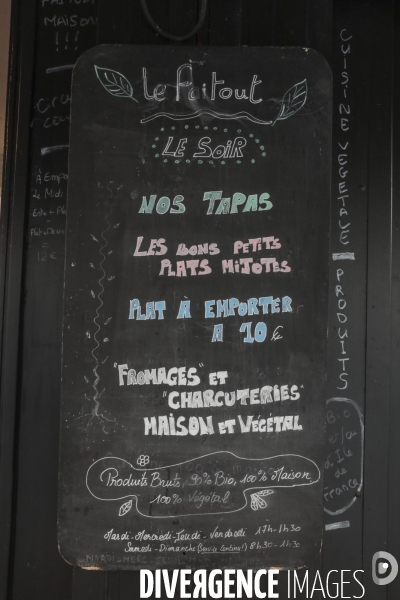 FAIT
MAISON
!!!
Le Faitout
LE SOIR
NOS TAPAS
LES BONS PETITS
PLATS MIJOTÉS
PLAT À EMPORTER
A 10 €
"FROMAGES" ET
"CHARCUTERIES"
MAISON ET VÉGÉTAL
Produits Bruts, 90% Bio, 100% Maison
100% Végétal
Mardi-Mercredi-Jeudi-Vendredi 17h-1h30
Samedi-Dimanche (Service Continu!) 8h30-1h30
CUISINE VEGETALE
PRODUITS
Bio
et/ou
d'Île
de
France
À Empo
le Midi
=
12€
DIVERGENCE IMAGES